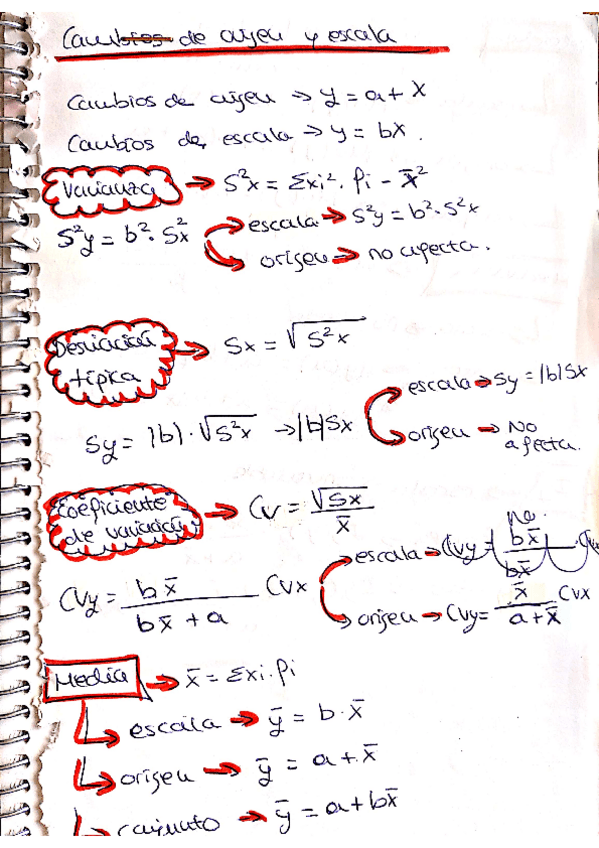 Cambios de origen y escala
Cambios de origen → y = a + x
Cambios de escala → y = bx.
Varianza → S²x = Σxi² · fi - x̄²
S²y = b² · S²x
escala → S²y = b² · S²x
origen → no afecta.
Desviación típica → Sx = √S²x
Sy = |b| · √S²x → |b|Sx
escala → Sy = |b|Sx
origen → No afecta.
Coeficiente de variación → Cv = √Sx / x̄
CVy = bx̄ / (bx̄ + a) CVx
escala → CVy = bx̄ / bx̄ · CVx
No
origen → CVy = x̄ / (a + x̄) CVx
Media → x̄ = Σxi · fi
escala → ȳ = b · x̄
origen → ȳ = a + x̄
conjunto → ȳ = a + bx̄